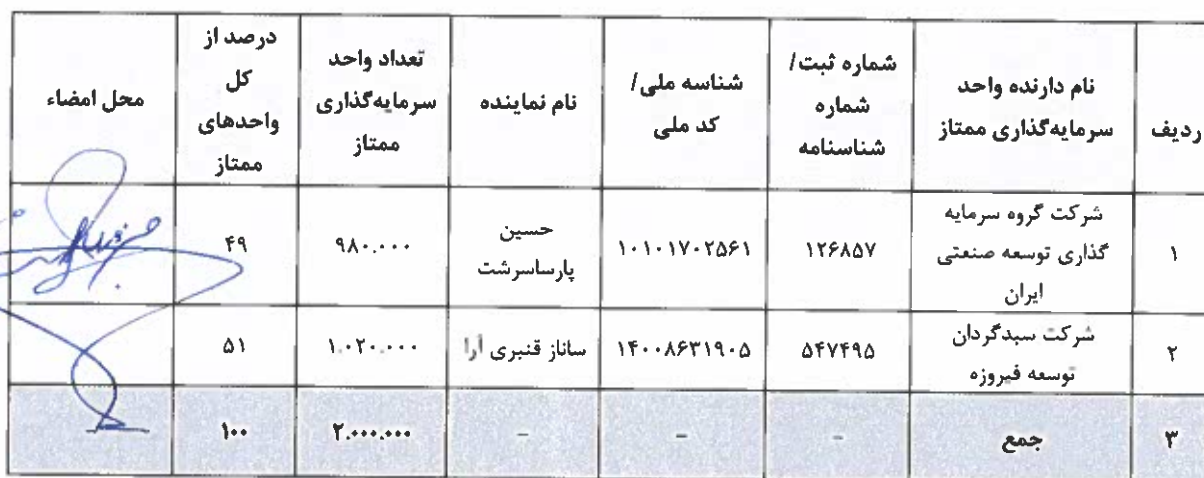 ردیف
نام دارنده واحد
سرمایه‌گذاری ممتاز
شماره ثبت/
شماره
شناسنامه
شناسه ملی/
کد ملی
نام نماینده
تعداد واحد
سرمایه‌گذاری
ممتاز
درصد از
کل
واحدهای
ممتاز
محل امضاء
۱
شرکت گروه سرمایه
گذاری توسعه صنعتی
ایران
۱۲۶۸۵۷
۱۰۱۰۱۷۰۲۵۶۱
حسین
پارساسرشت
۹۸۰.۰۰۰
۴۹
۲
شرکت سبدگردان
توسعه فیروزه
۵۴۷۴۹۵
۱۴۰۰۸۶۳۱۹۰۵
ساناز قنبری آرا
۱.۰۲۰.۰۰۰
۵۱
۳
جمع
-
-
-
۲.۰۰۰.۰۰۰
۱۰۰